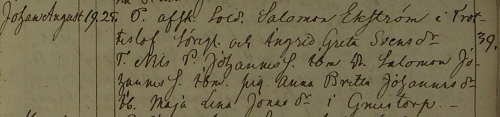 Johan August 19. 25. F. afsk. Sold. Salomon Ekström i Trot-
teslof Sörgl. och Ingrid Greta Svens dr 39.
T. Nils P. Johannes s. tbm Dr. Salomon Jo-
hannes s. tbm. pig. Anna Brita Johannes dr
tb. Maja Lena Jonas dr i Gnustorp. –